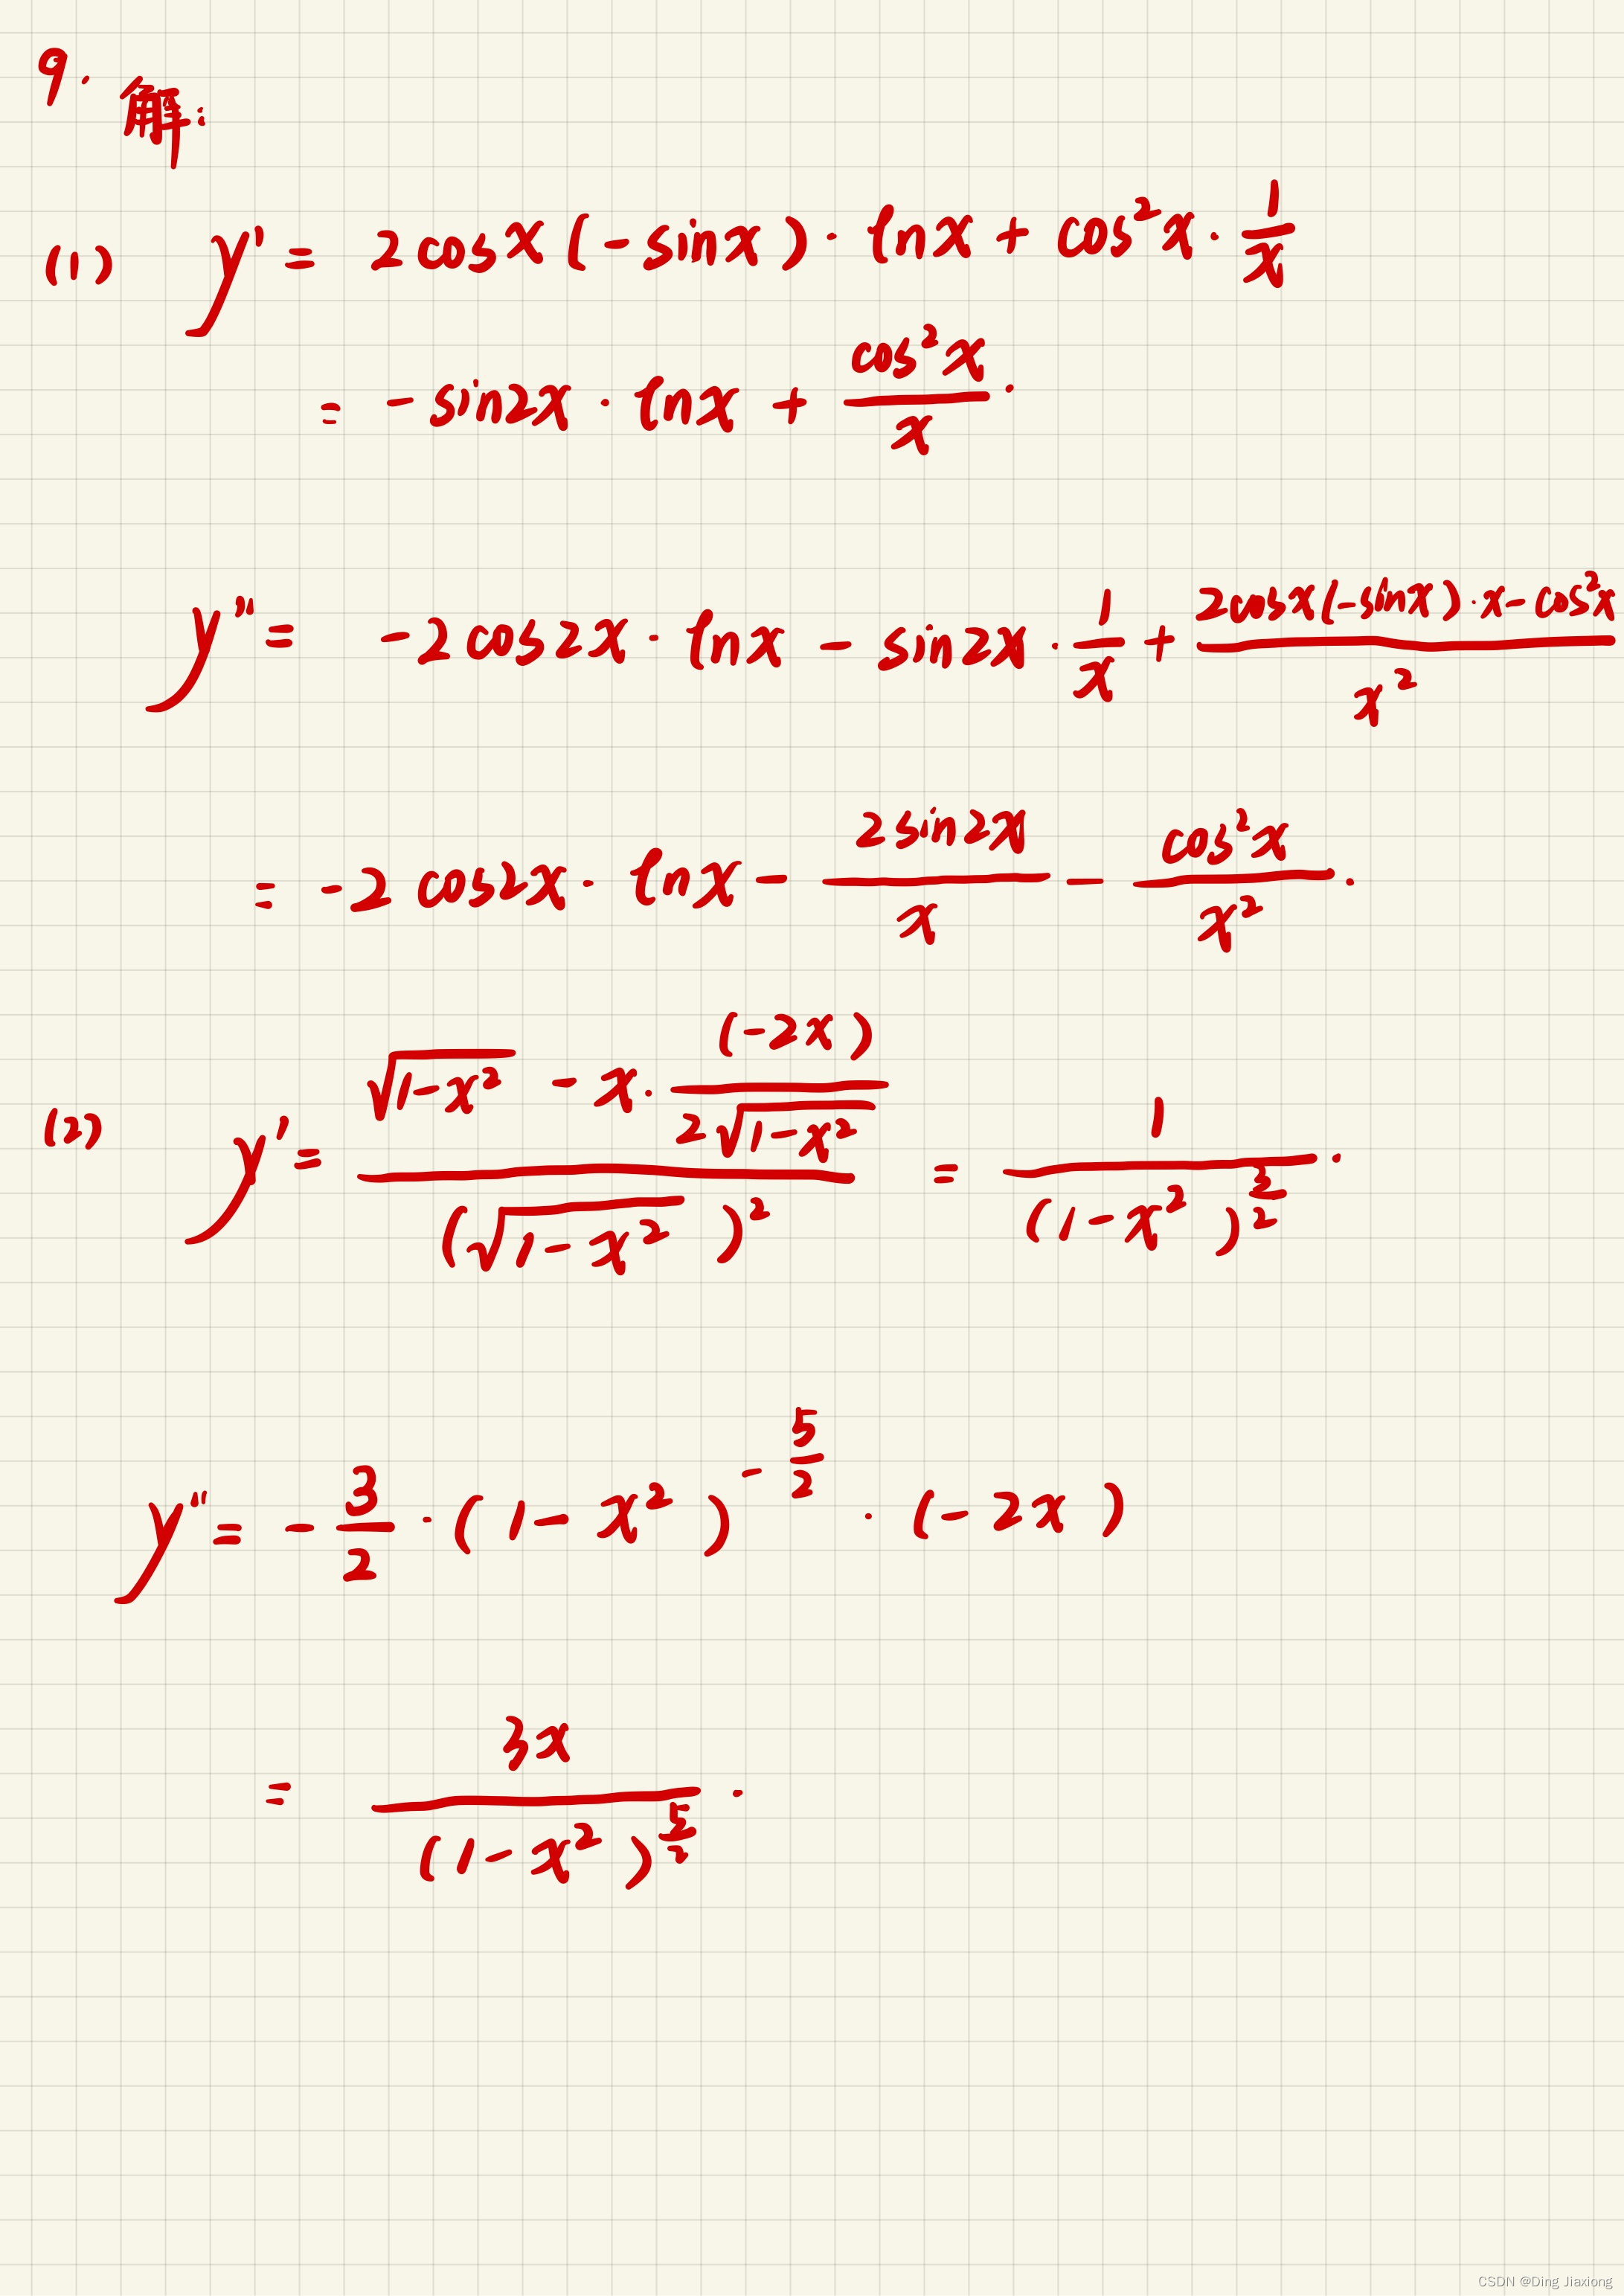 9. 解:
(1) y' = 2cosx(-sinx)·lnx + cos²x·\frac{1}{x}
= -sin2x·lnx + \frac{cos²x}{x}.
y'' = -2cos2x·lnx - sin2x·\frac{1}{x} + \frac{2cosx(-sinx)·x-cos²x}{x²}
= -2cos2x·lnx - \frac{2sin2x}{x} - \frac{cos²x}{x²}.
(2) y' = \frac{\sqrt{1-x²} - x·\frac{(-2x)}{2\sqrt{1-x²}}}{(\sqrt{1-x²})²} = \frac{1}{(1-x²)^{\frac{3}{2}}}.
y'' = -\frac{3}{2}·(1-x²)^{-\frac{5}{2}}·(-2x)
= \frac{3x}{(1-x²)^{\frac{5}{2}}}.
CSDN @Ding Jiaxiong